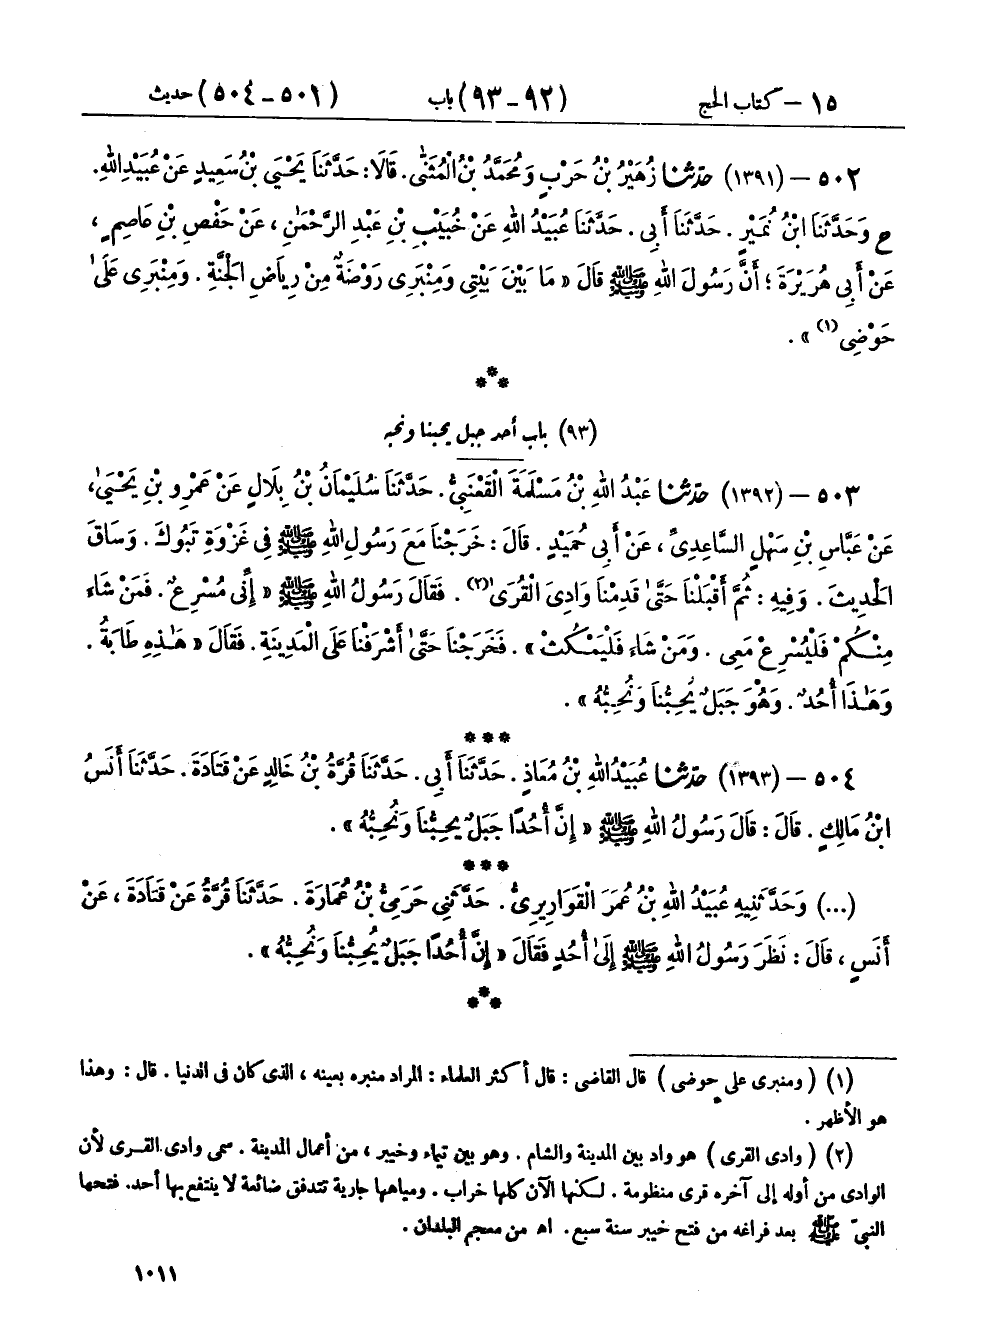 ١٥ – كتاب الحج (٩٢-٩٣) باب (٥٠١-٥٠٤) حديث
٥٠٢ – (١٣٩١) حدّثنا زُهَيْرُ بْنُ حَرْبٍ وَمُحَمَّدُ بْنُ الْمُثَنَّى. قَالَا: حَدَّثَنَا يَحْيَى بْنُ سَعِيدٍ عَنْ عُبَيْدِ اللهِ.
ح وَحَدَّثَنَا ابْنُ نُمَيْرٍ. حَدَّثَنَا أَبِي. حَدَّثَنَا عُبَيْدُ اللهِ عَنْ خُبَيْبِ بْنِ عَبْدِ الرَّحْمٰنِ، عَنْ حَفْصِ بْنِ عَاصِمٍ،
عَنْ أَبِي هُرَيْرَةَ؛ أَنَّ رَسُولَ اللهِ ﷺ قَالَ « مَا بَيْنَ بَيْتِي وَمِنْبَرِى رَوْضَةٌ مِنْ رِيَاضِ الْجَنَّةِ. وَمِنْبَرِى عَلَىٰ
حَوْضِى(١) ».
***
(٩٣) باب أحد جبل يحبنا ونحبه
٥٠٣ – (١٣٩٢) حدّثنا عَبْدُ اللهِ بْنُ مَسْلَمَةَ الْقَعْنَبِيُّ. حَدَّثَنَا سُلَيْمَانُ بْنُ بِلَالٍ عَنْ عَمْرِو بْنِ يَحْيَىٰ،
عَنْ عَبَّاسِ بْنِ سَهْلٍ السَّاعِدِىِّ، عَنْ أَبِي حُمَيْدٍ. قَالَ: خَرَجْنَا مَعَ رَسُولِ اللهِ ﷺ فِي غَزْوَةِ تَبُوكَ. وَسَاقَ
الْحَدِيثَ. وَفِيهِ: ثُمَّ أَقْبَلْنَا حَتَّىٰ قَدِمْنَا وَادِىَ الْقُرَىٰ(٢). فَقَالَ رَسُولُ اللهِ ﷺ « إِنِّى مُسْرِعٌ. فَمَنْ شَاءَ
مِنْكُمْ فَلْيُسْرِعْ مَعِى. وَمَنْ شَاءَ فَلْيَمْكُثْ ». فَخَرَجْنَا حَتَّىٰ أَشْرَفْنَا عَلَى الْمَدِينَةِ. فَقَالَ « هٰذِهِ طَابَةُ.
وَهٰذَا أُحُدٌ. وَهُوَ جَبَلٌ يُحِبُّنَا وَنُحِبُّهُ ».
***
٥٠٤ – (١٣٩٣) حدّثنا عُبَيْدُ اللهِ بْنُ مُعَاذٍ. حَدَّثَنَا أَبِي. حَدَّثَنَا قُرَّةُ بْنُ خَالِدٍ عَنْ قَتَادَةَ. حَدَّثَنَا أَنَسُ
ابْنُ مَالِكٍ. قَالَ: قَالَ رَسُولُ اللهِ ﷺ « إِنَّ أُحُدًا جَبَلٌ يُحِبُّنَا وَنُحِبُّهُ ».
***
(...) وَحَدَّثَنِيهِ عُبَيْدُ اللهِ بْنُ عُمَرَ الْقَوَارِيرِىُّ. حَدَّثَنِي حَرَمِىُّ بْنُ عُمَارَةَ. حَدَّثَنَا قُرَّةُ عَنْ قَتَادَةَ، عَنْ
أَنَسٍ، قَالَ: نَظَرَ رَسُولُ اللهِ ﷺ إِلَىٰ أُحُدٍ فَقَالَ « إِنَّ أُحُدًا جَبَلٌ يُحِبُّنَا وَنُحِبُّهُ ».
***
(١) (ومنبرى على حوضى) قال القاضى: قال أكثر العلماء: المراد منبره بعينه، الذى كان فى الدنيا. قال: وهذا
هو الأظهر.
(٢) (وادى القرى) هو واد بين المدينة والشام. وهو بين تيماء وخيبر، من أعمال المدينة. سمى وادى القرى لأن
الوادى من أوله إلى آخره قرى منظومة. لكنها الآن كلها خراب. ومياهها جارية تتدفق ضائعة لا ينتفع بها أحد. فتحها
النبىّ ﷺ بعد فراغه من فتح خيبر سنة سبع. اه من معجم البلدان.
١٠١١